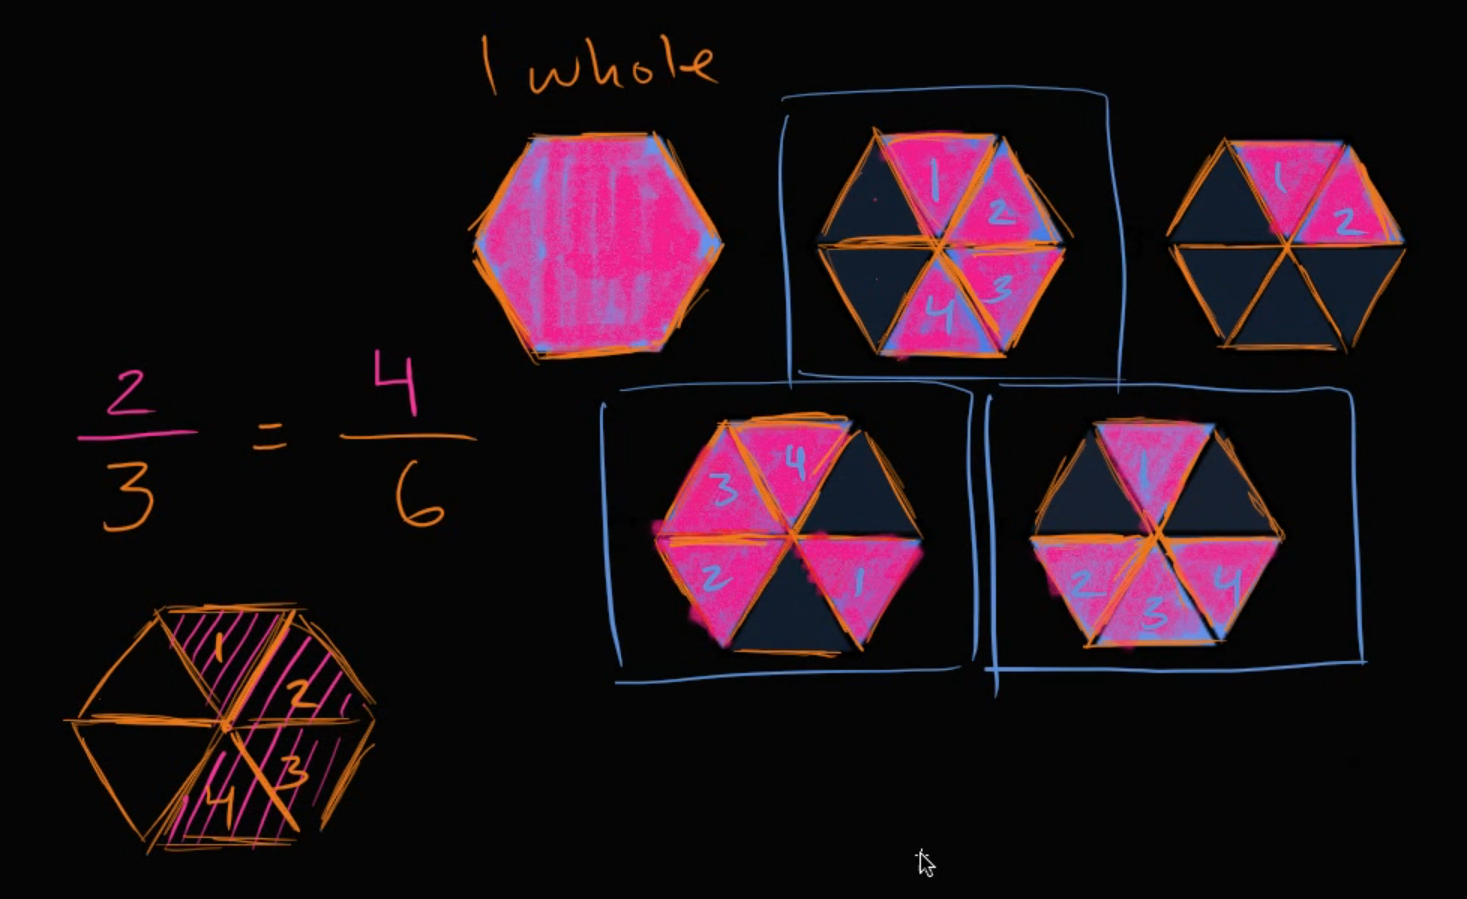 1 whole
1
2
3
4
1
2
2/3 = 4/6
3
4
2
1
1
2
3
4
1
2
3
4